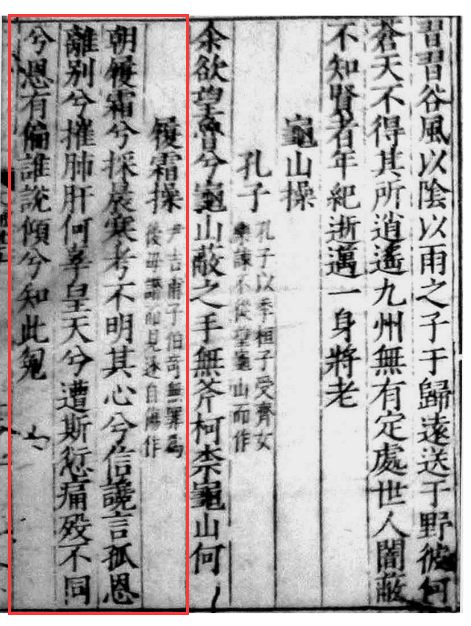 習習谷風以陰以雨之子于歸遠送于野彼何
蒼天不得其所逍遙九州無有定處世人闇蔽
不知賢者年紀逝邁一身將老
龜山操
孔子
孔子以季桓子受齊女
樂諫不從望龜山而作
余欲望魯兮龜山蔽之手無斧柯柰龜山何
履霜操
尹吉甫子伯奇無罪為
後母譖而見逐自傷作
朝履霜兮採晨寒考不明其心兮信讒言孤恩
離别兮摧肺肝何辜皇天兮遭斯愆痛殁不同
兮恩有偏誰說傾兮知此冤